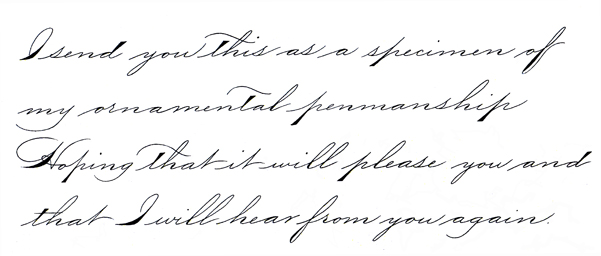 I send you this as a specimen of
my ornamental penmanship
Hoping that it will please you and
that I will hear from you again.